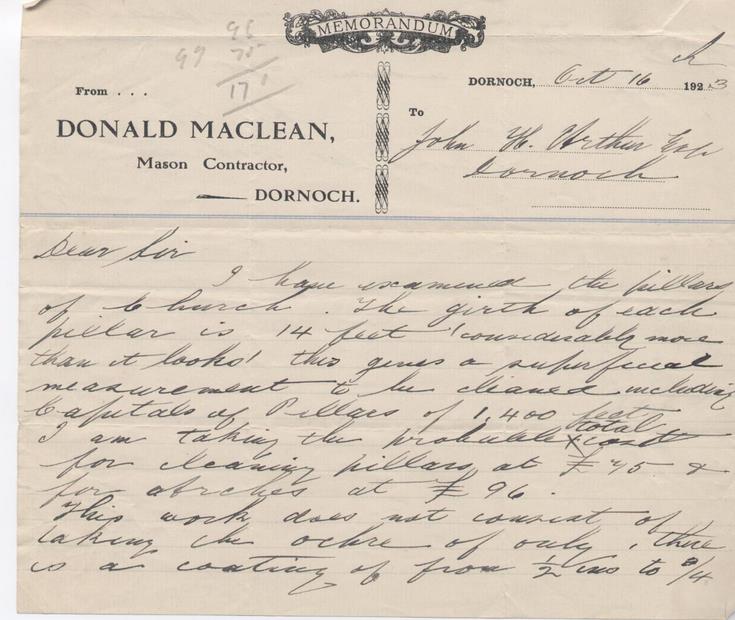 MEMORANDUM
96
97 75
171
From . . .
DONALD MACLEAN,
Mason Contractor,
DORNOCH.
DORNOCH, Oct 16th 1923
To
John H. Arthur Esq
Dornoch
Dear Sir
I have examined the pillars
of Church. The girth of each
pillar is 14 feet 'considerably more
than it looks' this gives a superficial
measurement to be cleaned including
Capitals of Pillars of 1,400 feet
I am taking the probable x total cost
for cleaning pillars at £75 &
for Arches at £96.
This work does not consist of
taking the ochre of only, there
is a coating of from 1/2 ins to 3/4